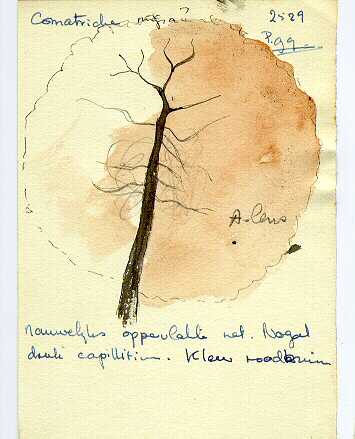 Comatricha nigra 2529
P.99.
A-lens
nauwelijks oppervlakkig net. Nogal
dunk capillitium. Kleur roodbruin